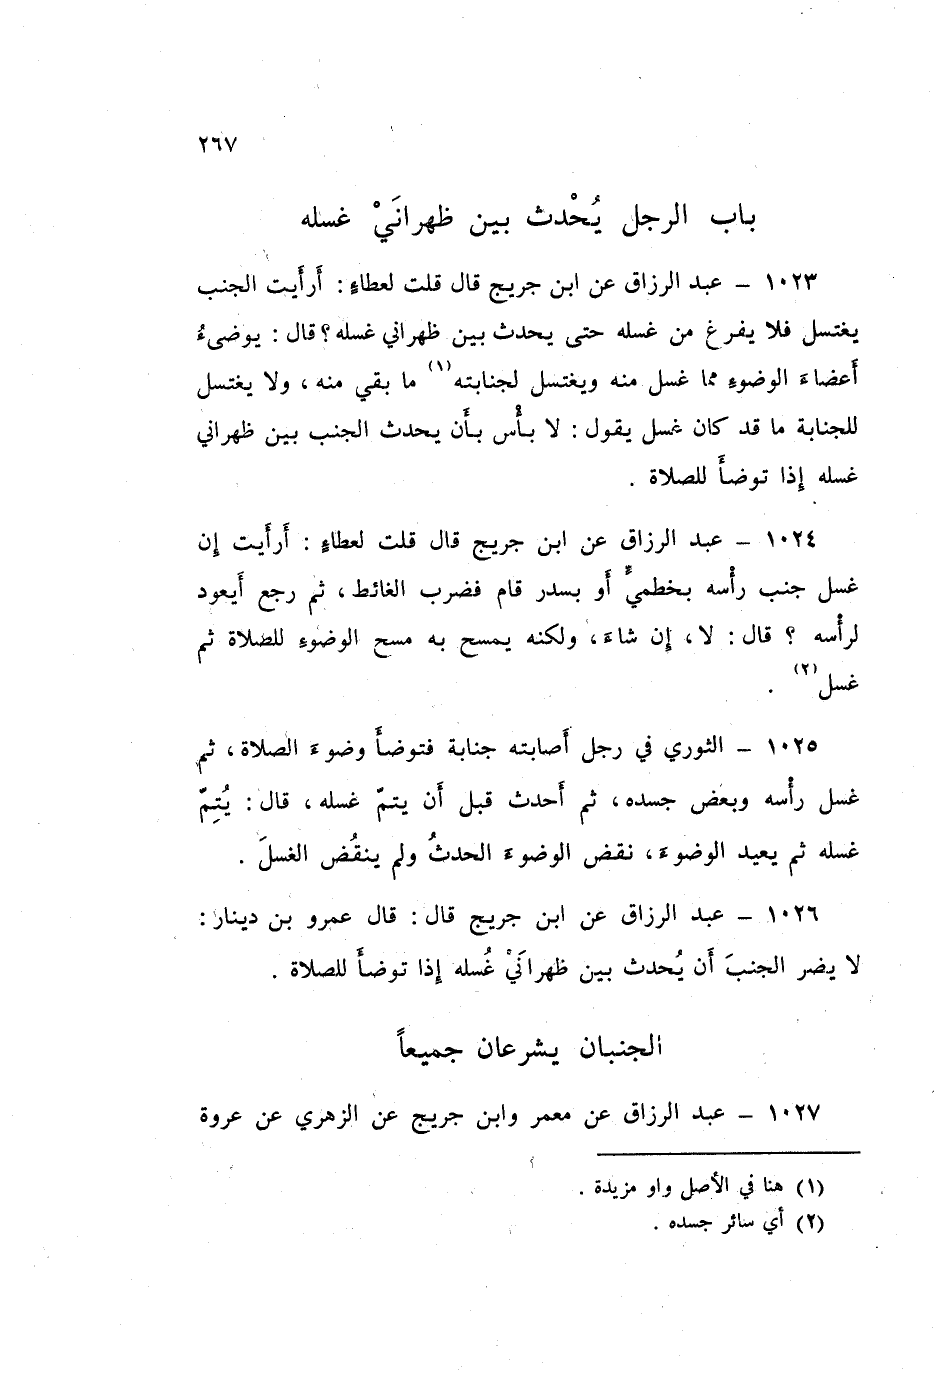 ٢٦٧
باب الرجل يُحْدث بين ظهرانَيْ غسله
١٠٢٣ – عبد الرزاق عن ابن جريج قال قلت لعطاءٍ : أَرأَيت الجنب
يغتسل فلا يفرغ من غسله حتى يحدث بين ظهراني غسله؟ قال : يوضىءُ
أَعضاءَ الوضوءِ مما غسل منه ويغتسل لجنابته(١) ما بقي منه ، ولا يغتسل
للجنابة ما قد كان غسل يقول : لا بأْس بأَن يحدث الجنب بين ظهراني
غسله إِذا توضأَ للصلاة .
١٠٢٤ – عبد الرزاق عن ابن جريج قال قلت لعطاءٍ : أَرأَيت إِن
غسل جنب رأْسه بخطميٍّ أَو بسدر قام فضرب الغائط ، ثم رجع أَيعود
لرأْسه ؟ قال : لا ، إِن شاءَ ، ولكنه يمسح به مسح الوضوءِ للصلاة ثم
غسل(٢) .
١٠٢٥ – الثوري في رجل أَصابته جنابة فتوضأَ وضوءَ الصلاة ، ثم
غسل رأْسه وبعض جسده ، ثم أَحدث قبل أَن يتمّ غسله ، قال : يُتِمّ
غسله ثم يعيد الوضوءَ ، نقض الوضوءَ الحدثُ ولم ينقُض الغسلَ .
١٠٢٦ – عبد الرزاق عن ابن جريج قال : قال عمرو بن دينار :
لا يضر الجنبَ أَن يُحدث بين ظهرانَيْ غُسله إِذا توضأَ للصلاة .
الجنبان يشرعان جميعاً
١٠٢٧ – عبد الرزاق عن معمر وابن جريج عن الزهري عن عروة
(١) هنا في الأصل واو مزيدة .
(٢) أي سائر جسده .